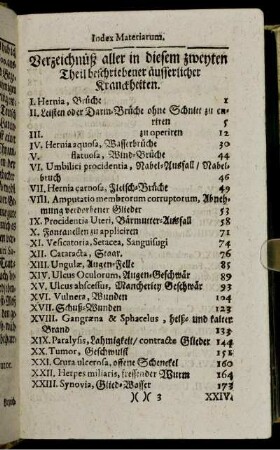 Index Materiarum.
Verzeichnüß aller in diesem zweyten
Theil beschriebener äusserlicher
Kranckheiten.
I. Hernia, Brüche 1
II. Leisten oder Darm-Brüche ohne Schnitt zu cu-
riren 5
III. zu operiren 12
IV. Hernia aquosa, Wasserbrüche 30
V. flatuosa, Wind-Brüche 44
VI. Umbilici procidentia, Nabel-Ausfall / Nabel-
bruch 46
VII. Hernia carnosa, Fleisch-Brüche 49
VIII. Amputatio membrorum corruptorum, Abneh-
mung verderbener Glieder 53
IX. Procidentia Uteri, Bärmutter-Ausfall 58
X. Fontanellen zu appliciren 71
XI. Vesicatoria, Setacea, Sanguisugi 74
XII. Cataracta, Staar. 76
XIII. Ungulæ, Augen-Felle 85
XIV. Ulcus Oculorum, Augen-Geschwär 89
XV. Ulcus abscessus, Mancherley Geschwär 93
XVI. Vulnera, Wunden 104
XVII. Schuß-Wunden 123
XVIII. Gangræna & Sphacelus, heiß- und kalter
Brand 133
XIX. Paralysis, Lahmigkeit / contracte Glieder 144
XX. Tumor, Geschwulst
XXI. Crura ulcerosa, offene Schenckel 160
XXII. Herpes miliaris, fressender Wurm 164
XXIII. Synovia, Glied-Wasser 173
)( )( 3 XXIV.